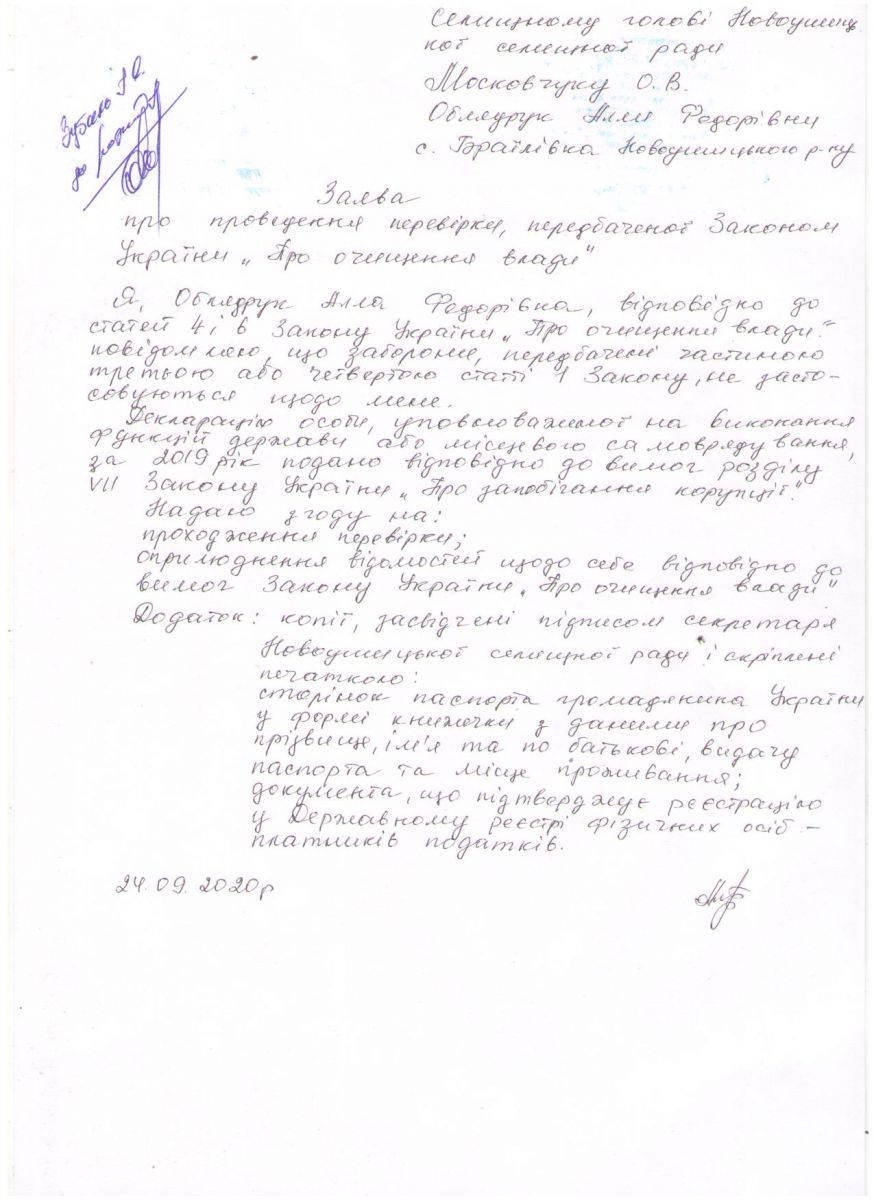 Селищному голові Новоушиць
кої селищної ради
Московчуку О.В.
Облядрук Алли Федорівни
с. Браїлівка Новоушицького р-ну
Зубань
до
Заява
про проведення перевірки, передбаченої Законом
України „Про очищення влади"
Я, Облядрук Алла Федорівна, відповідно до
статей 4 і 6 Закону України „Про очищення влади".
повідомляю, що заборони, передбачені частиною
третьою або четвертою статті 1 Закону, не засто-
совуються щодо мене.
Декларацію особи, уповноваженої на виконання
функцій держави або місцевого самоврядування,
за 2019 рік подано відповідно до вимог розділу
VII Закону України „Про запобігання корупції".
Надаю згоду на:
проходження перевірки;
оприлюднення відомостей щодо себе відповідно до
вимог Закону України „Про очищення влади"
Додаток: копії, засвідчені підписом секретаря
Новоушицької селищної ради і скріплені
печаткою:
сторінок паспорта громадянина України
у формі книжечки з даними про
прізвище, ім'я та по батькові, видачу
паспорта та місце проживання;
документа, що підтверджує реєстрацію
у Державному реєстрі фізичних осіб –
платників податків.
24.09.2020р